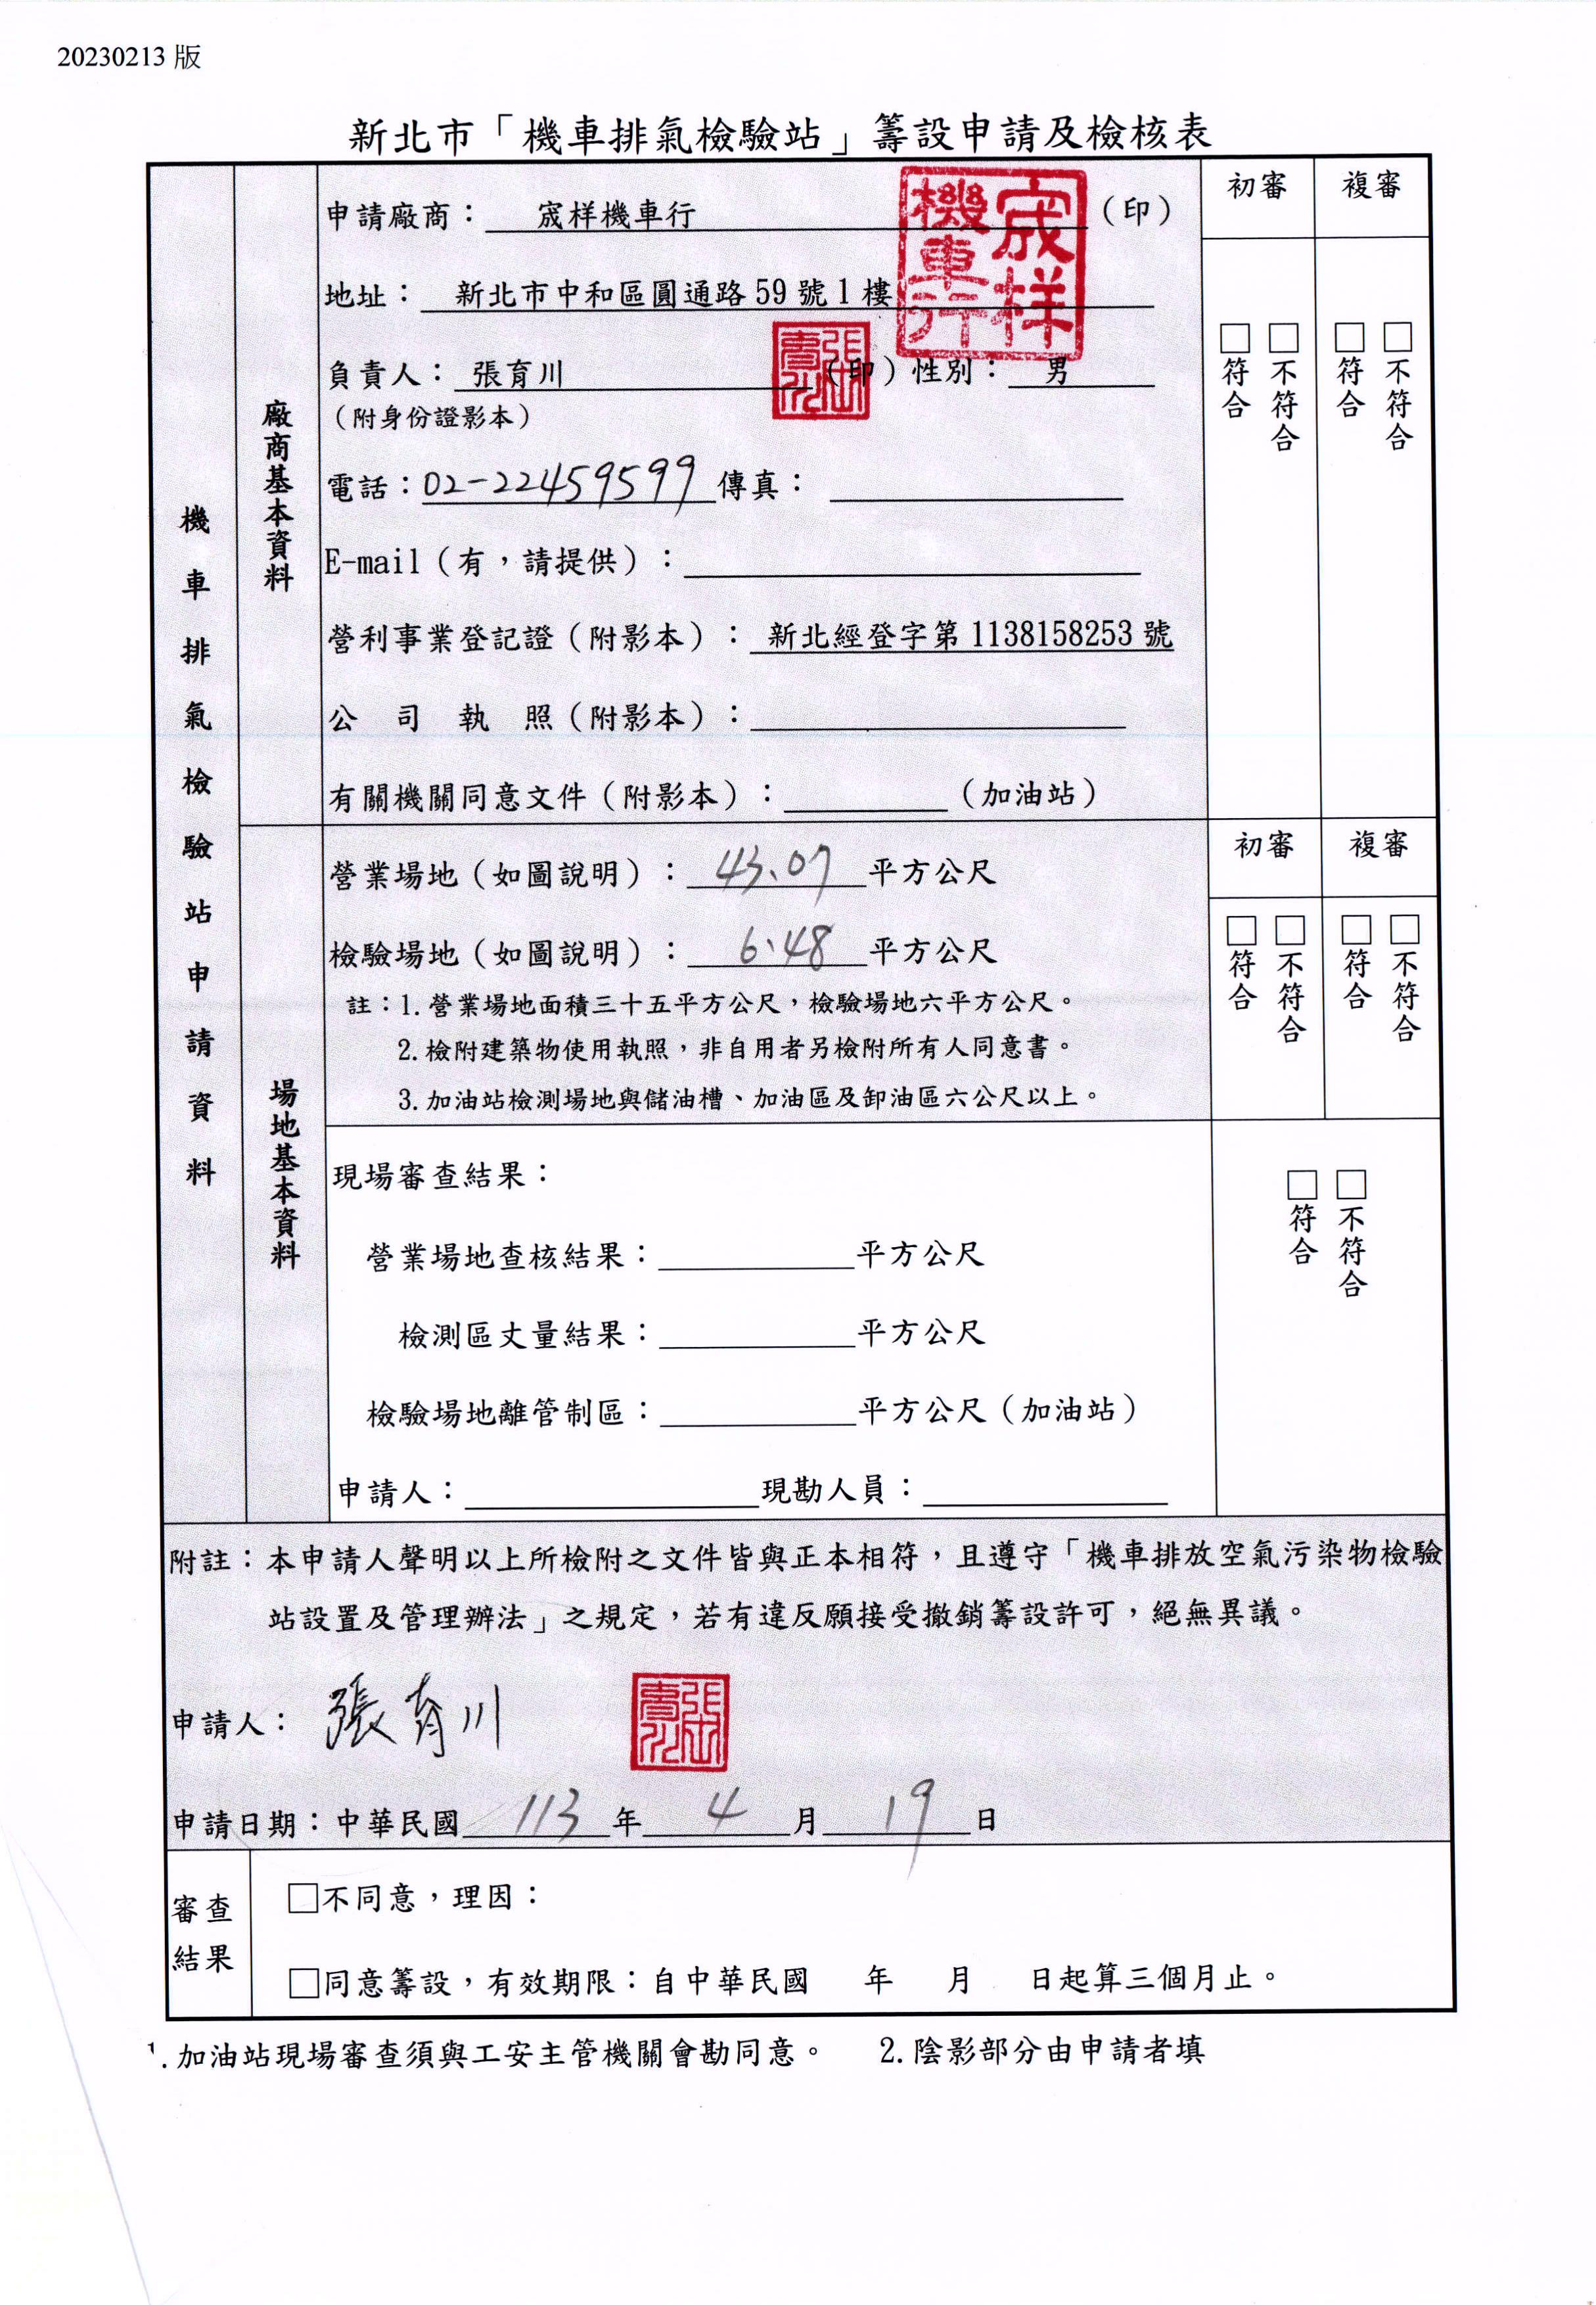 20230213 版
新北市「機車排氣檢驗站」籌設申請及檢核表
機車排氣檢驗站申請資料
廠商基本資料
申請廠商： 宬样機車行 （印）
宬样機車行
地址： 新北市中和區圓通路 59 號 1 樓
負責人： 張育川 （印）性別： 男
張育川
（附身份證影本）
電話：02-22459599 傳真：
E-mail（有，請提供）：
營利事業登記證（附影本）： 新北經登字第 1138158253 號
公 司 執 照（附影本）：
有關機關同意文件（附影本）： （加油站）
初審 複審
□符合 □不符合 □符合 □不符合
場地基本資料
營業場地（如圖說明）： 43.07 平方公尺
檢驗場地（如圖說明）： 6.48 平方公尺
註：1.營業場地面積三十五平方公尺，檢驗場地六平方公尺。
2.檢附建築物使用執照，非自用者另檢附所有人同意書。
3.加油站檢測場地與儲油槽、加油區及卸油區六公尺以上。
初審 複審
□符合 □不符合 □符合 □不符合
現場審查結果：
營業場地查核結果： 平方公尺
檢測區丈量結果： 平方公尺
檢驗場地離管制區： 平方公尺（加油站）
申請人： 現勘人員：
□符合 □不符合
附註：本申請人聲明以上所檢附之文件皆與正本相符，且遵守「機車排放空氣污染物檢驗
站設置及管理辦法」之規定，若有違反願接受撤銷籌設許可，絕無異議。
申請人： 張育川
張育川
申請日期：中華民國 113 年 4 月 19 日
審查
結果
□不同意，理因：
□同意籌設，有效期限：自中華民國 年 月 日起算三個月止。
1.加油站現場審查須與工安主管機關會勘同意。 2.陰影部分由申請者填